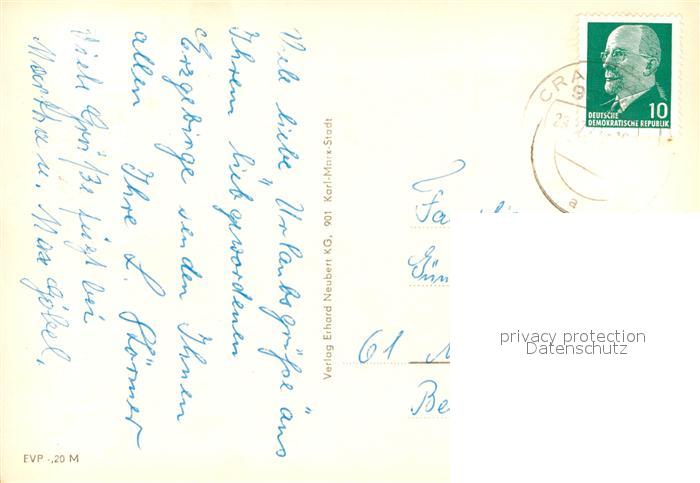 Viele liebe Urlaubsgrüße aus
Ihrem liebgewordenen
Erzgebirge senden Ihnen
allen Ihre L. Störmer
Viele Grüße fügt bei
Martha u. Max Göbel.
Verlag Erhard Neubert KG, 901 Karl-Marx-Stadt
EVP -,20 M
10
DEUTSCHE
DEMOKRATISCHE REPUBLIK
CRA
9
23
a
Fa
Gün
61 M
Be
privacy protection
Datenschutz